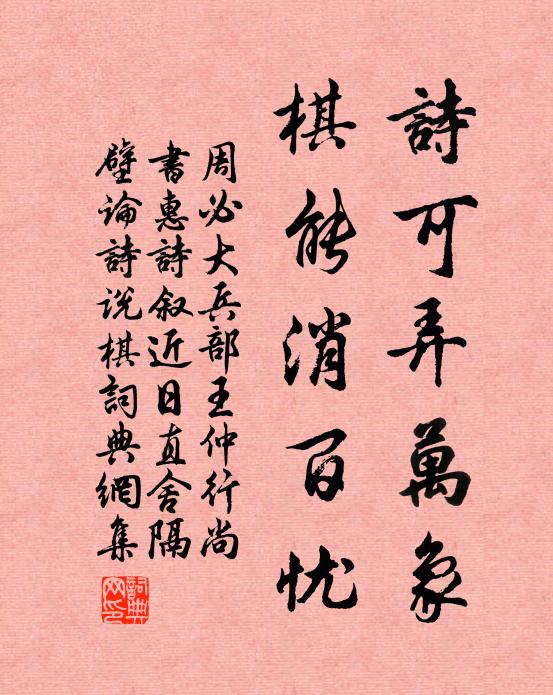 詩可弄萬象
棋能消百忧
周必大兵部王仲行尚
書惠詩叙近日直舍隔
壁論詩说棋詞典網集
詞典網印